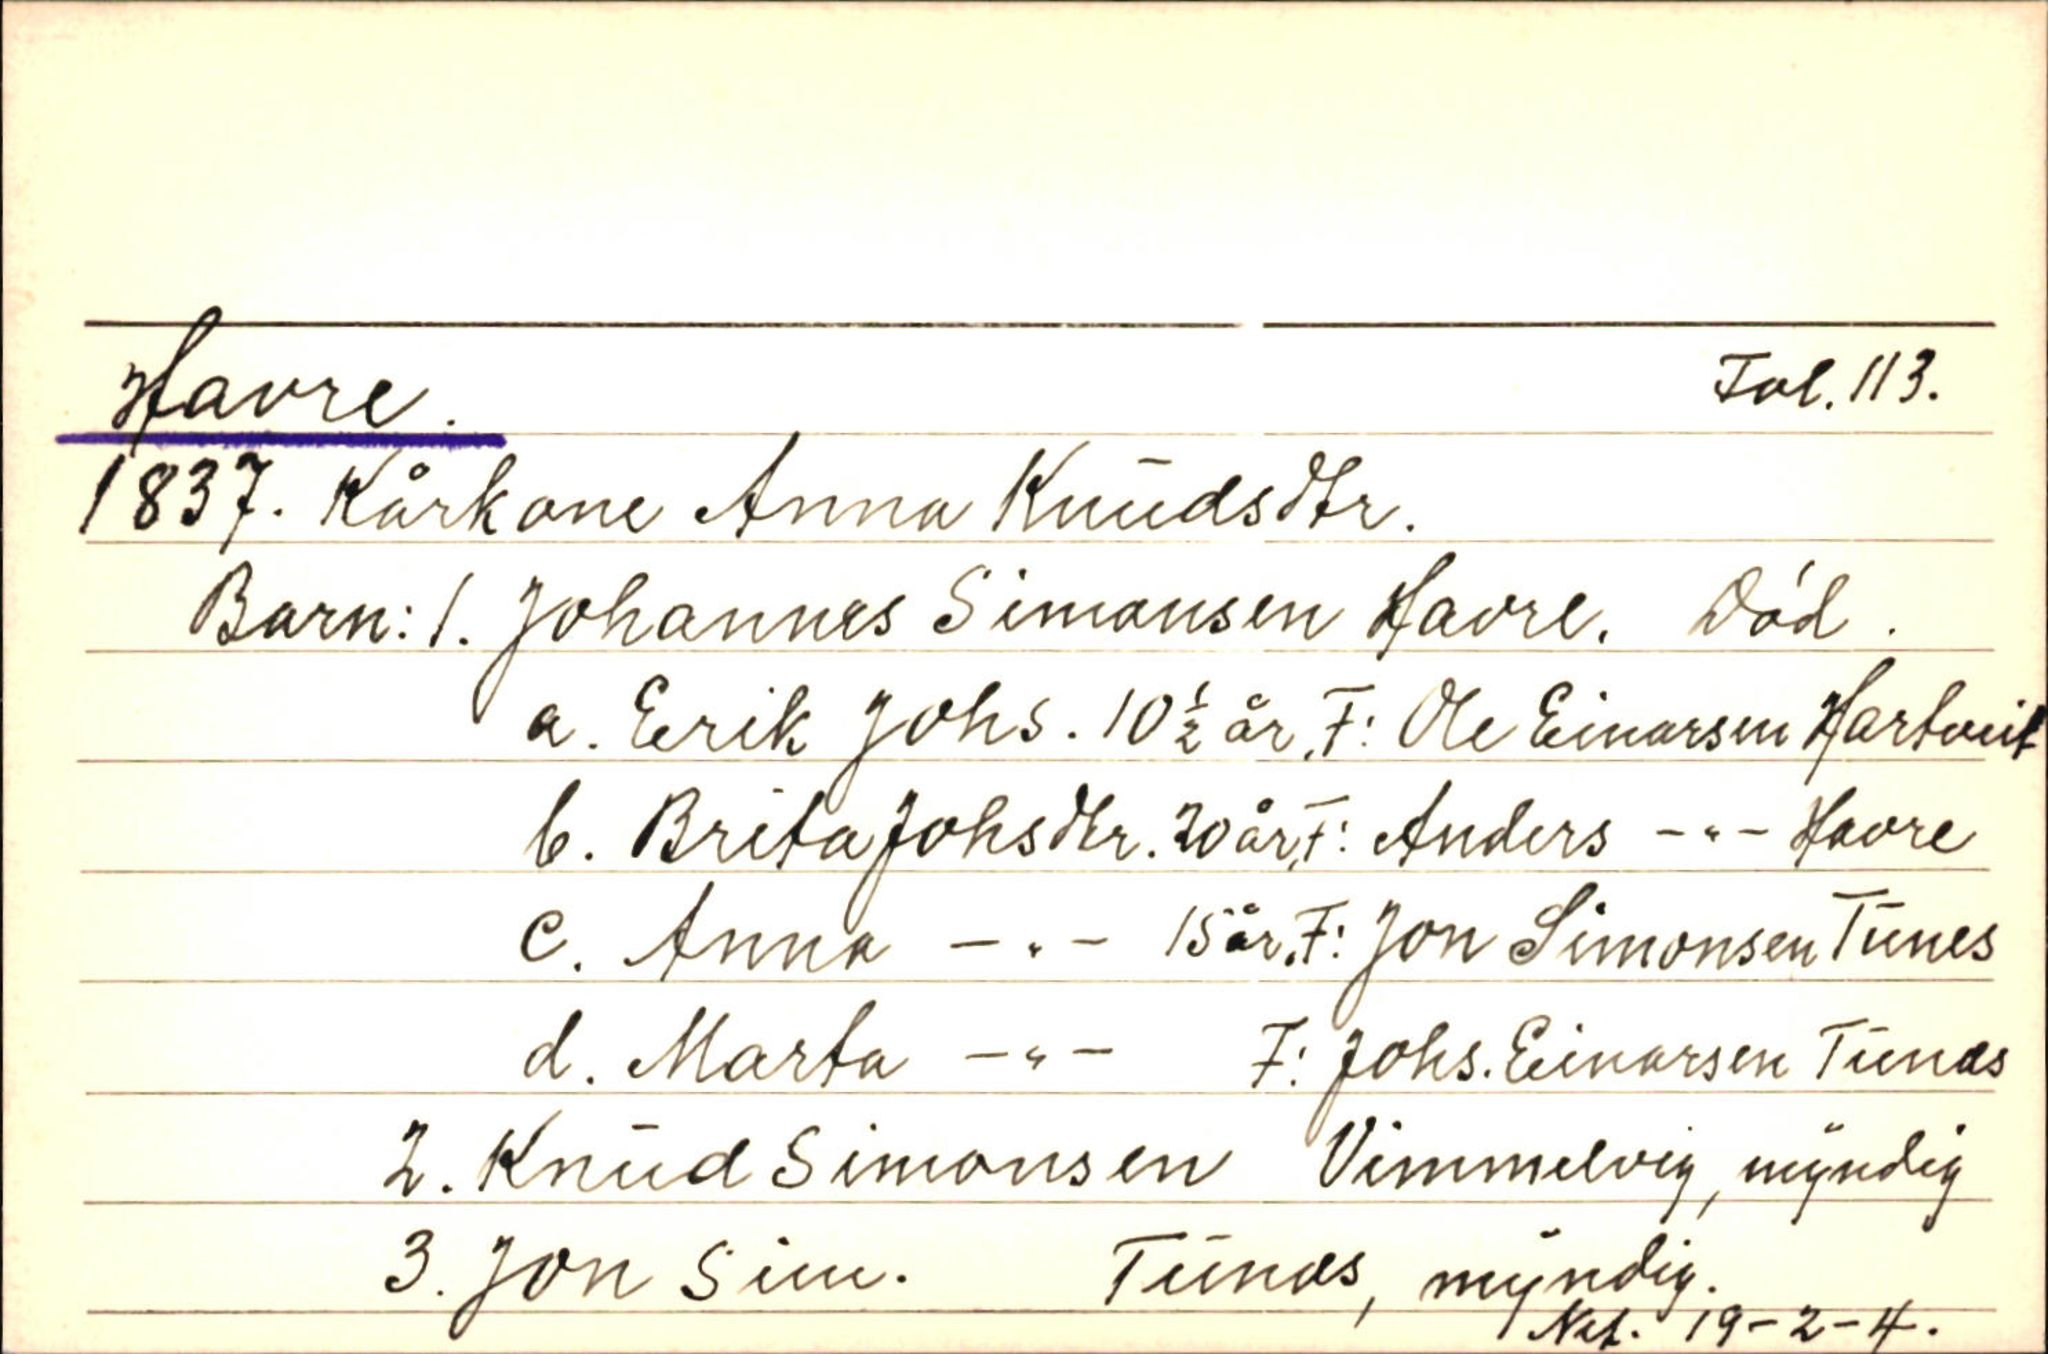 Havre. Fol. 113.
1837. Kårkone Anna Knudsdtr.
Barn: 1. Johannes Simonsen Havre. Död.
a. Erik Johs. 10½ år, F: Ole Einarsen Hartveit
b. Brita Johsdtr. 20 år, F: Anders -"- Havre
c. Anna -"- 15 år, F: Jon Simonsen Tunes
d. Marta -"- F: Johs. Einarsen Tunæs
2. Knud Simonsen Vimmelvig, myndig
3. Jon Sim. Tunæs, myndig.
Net. 19-2-4.